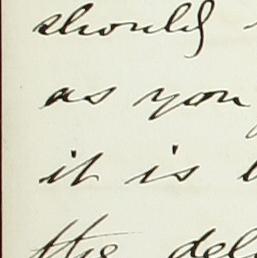 should
as you
it is
the